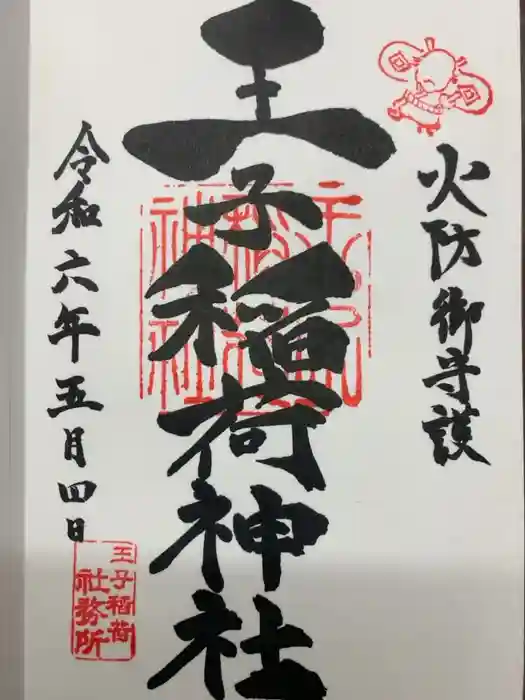 火防御守護
王子稲荷神社
王子稲荷神社
令和六年五月四日
王子稲荷
社務所